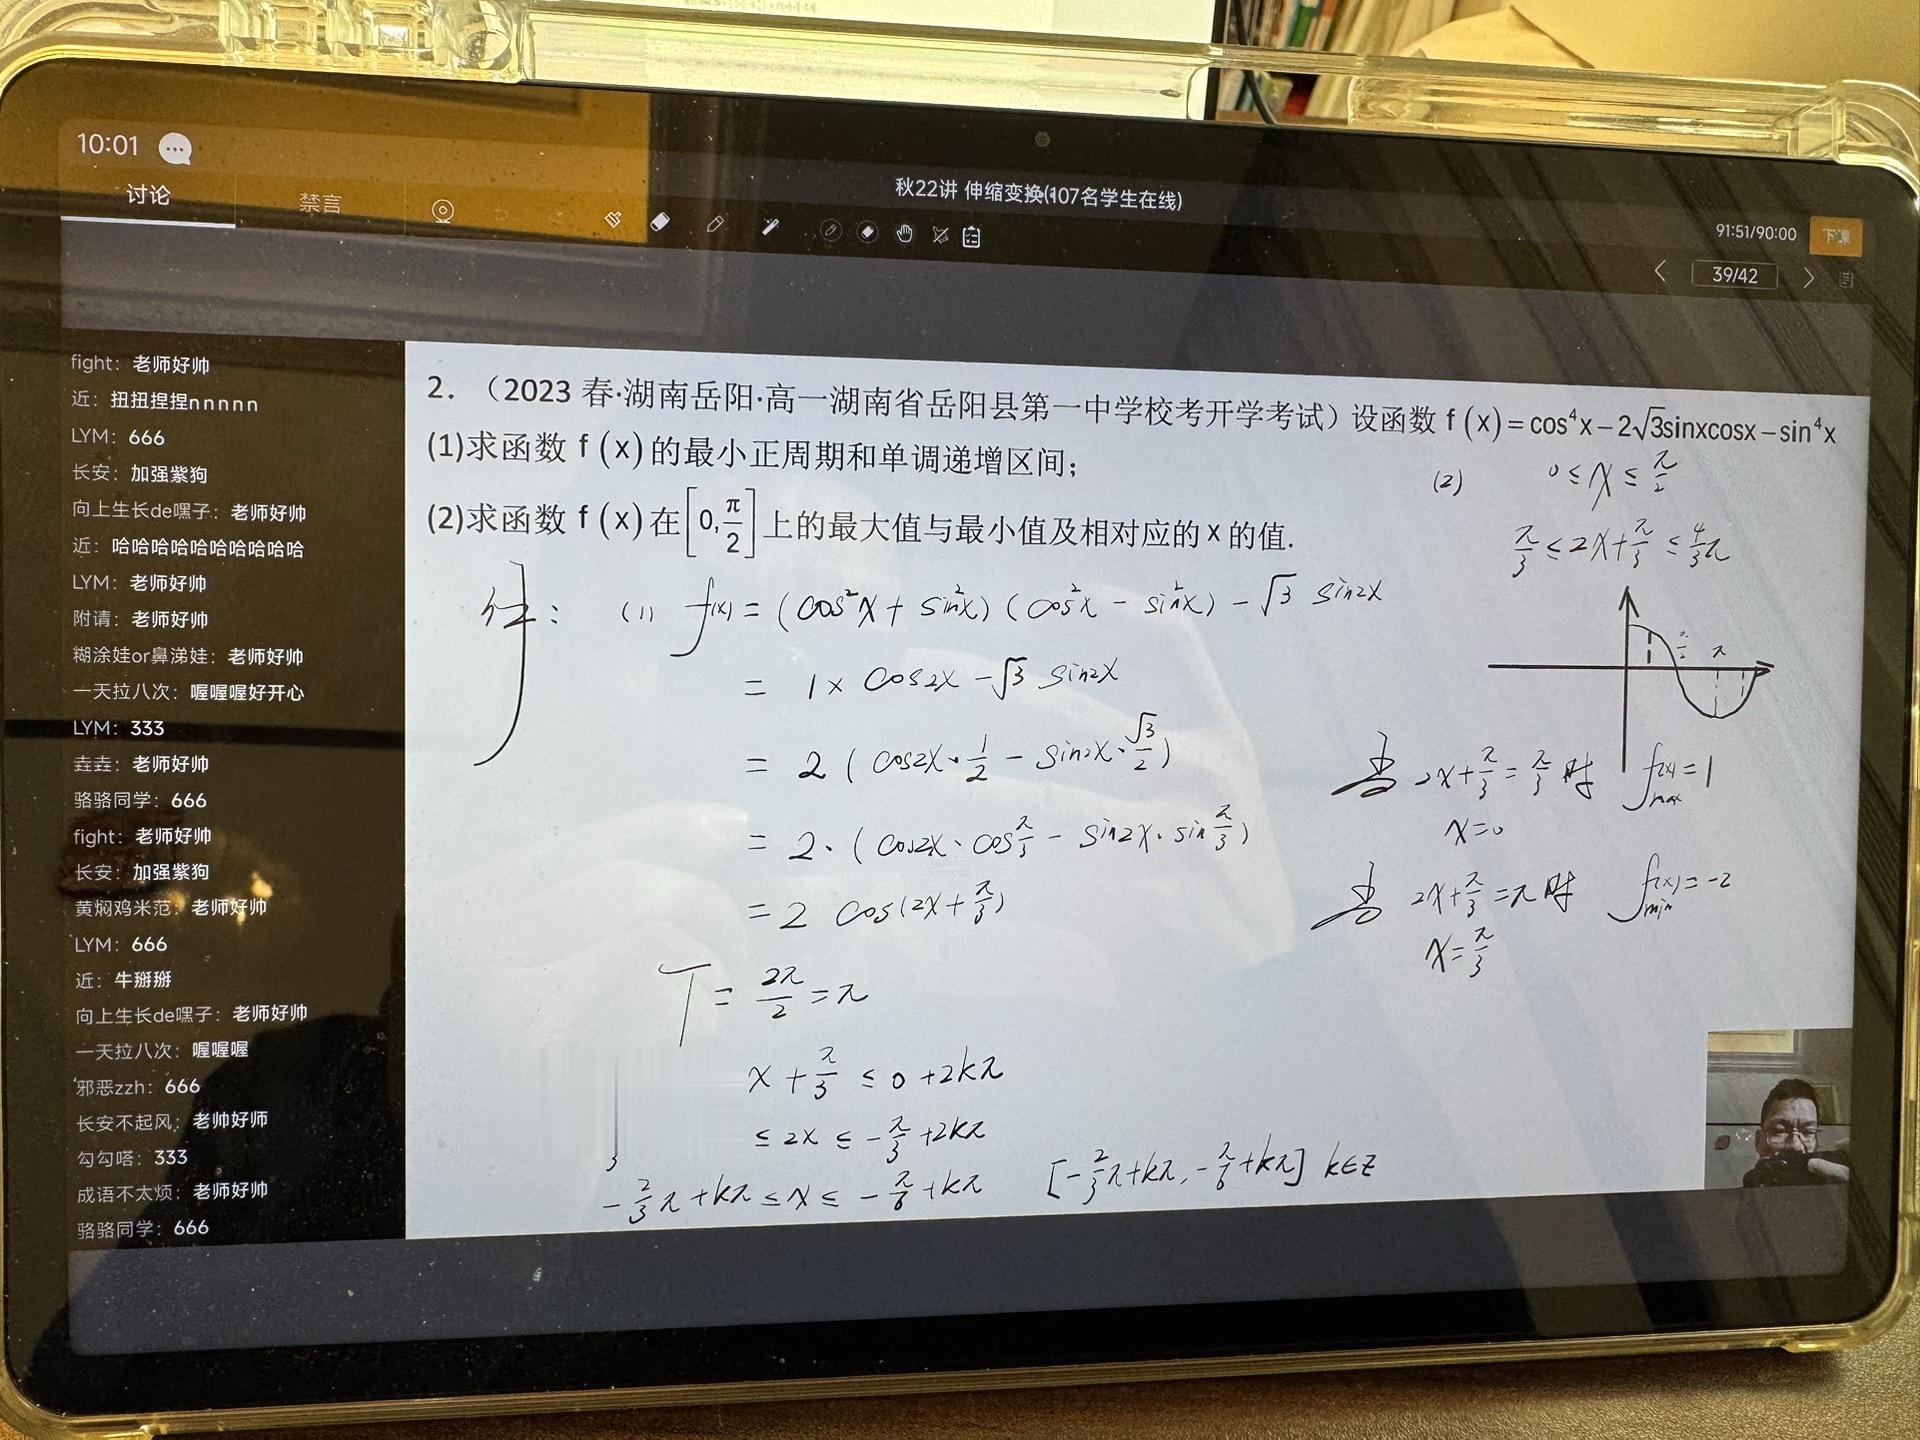 10:01
讨论 禁言
秋22讲 伸缩变换(107名学生在线)
91:51/90:00 下课
39/42
fight：老师好帅
近：扭扭捏捏nnnnn
LYM：666
长安：加强紫狗
向上生长de嘿子：老师好帅
近：哈哈哈哈哈哈哈哈哈哈
LYM：老师好帅
附请：老师好帅
糊涂娃or鼻涕娃：老师好帅
一天拉八次：喔喔喔好开心
LYM：333
垚垚：老师好帅
骆骆同学：666
fight：老师好帅
长安：加强紫狗
黄焖鸡米范：老师好帅
LYM：666
近：牛掰掰
向上生长de嘿子：老师好帅
一天拉八次：喔喔喔
邪恶zzh：666
长安不起风：老帅好师
勾勾嗒：333
成语不太烦：老师好帅
骆骆同学：666
2.（2023 春·湖南岳阳·高一湖南省岳阳县第一中学校考开学考试）设函数 f (x) = cos⁴x − 2√3sinxcosx − sin⁴x
(1)求函数 f (x) 的最小正周期和单调递增区间；
(2)求函数 f (x) 在[0, π/2]上的最大值与最小值及相对应的 x 的值.
(1) f(x) = (cos²x + sin²x) (cos²x − sin²x) − √3 sin2x
= 1× cos2x − √3 sin2x
= 2 ( cos2x · 1/2 − sin2x · √3/2 )
= 2 · ( cos2x · cos π/3 − sin2x · sin π/3 )
= 2 cos(2x + π/3)
T = 2π/2 = π
x + π/3 ≤ 0 + 2kπ
≤ 2x ≤ − π/3 + 2kπ
− 2/3 π + kπ ≤ x ≤ − π/6 + kπ [− 2/3 π + kπ, − π/6 + kπ] k∈Z
(2) 0 ≤ x ≤ π/2
π/3 ≤ 2x + π/3 ≤ 4/3 π
π/2 π
当 2x + π/3 = π/3 时 f(x)max = 1
x = 0
当 2x + π/3 = π 时 f(x)min = −2
x = π/3